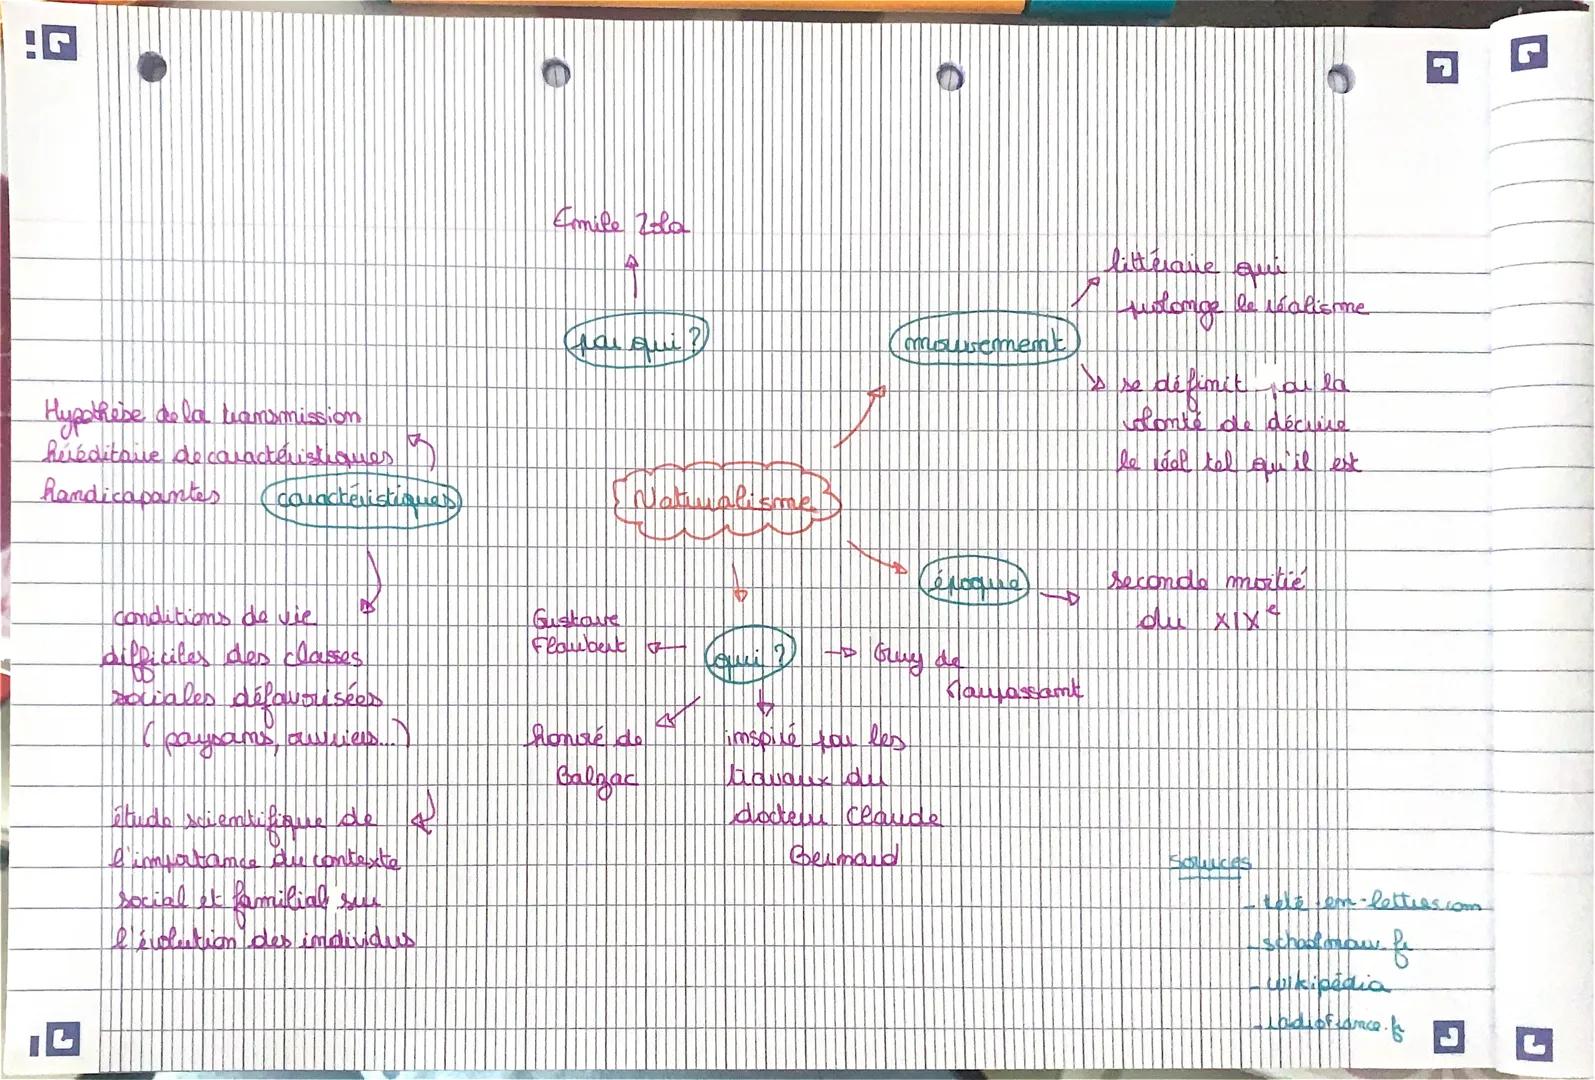 Emile Zola
par qui ?
mouvement
littéraire qui
prolonge le réalisme
se définit par la
volonté de décrire
le réel tel qu'il est
Hypothèse de la transmission
héréditaire de caractéristiques
handicapantes
caractéristiques
Naturalisme
époque
seconde moitié
du XIXe
conditions de vie
difficiles des classes
sociales défavorisées
( paysans, ouvriers...)
Gustave
Flaubert
qui ?
Guy de
Maupassant
honoré de
Balzac
inspiré par les
travaux du
docteur Claude
Bernard
étude scientifique de
l'importance du contexte
social et familial sur
l'évolution des individus
sources
- tete-en-lettres.com
- schoolmouv.fr
- wikipédia
- radiofrance.fr